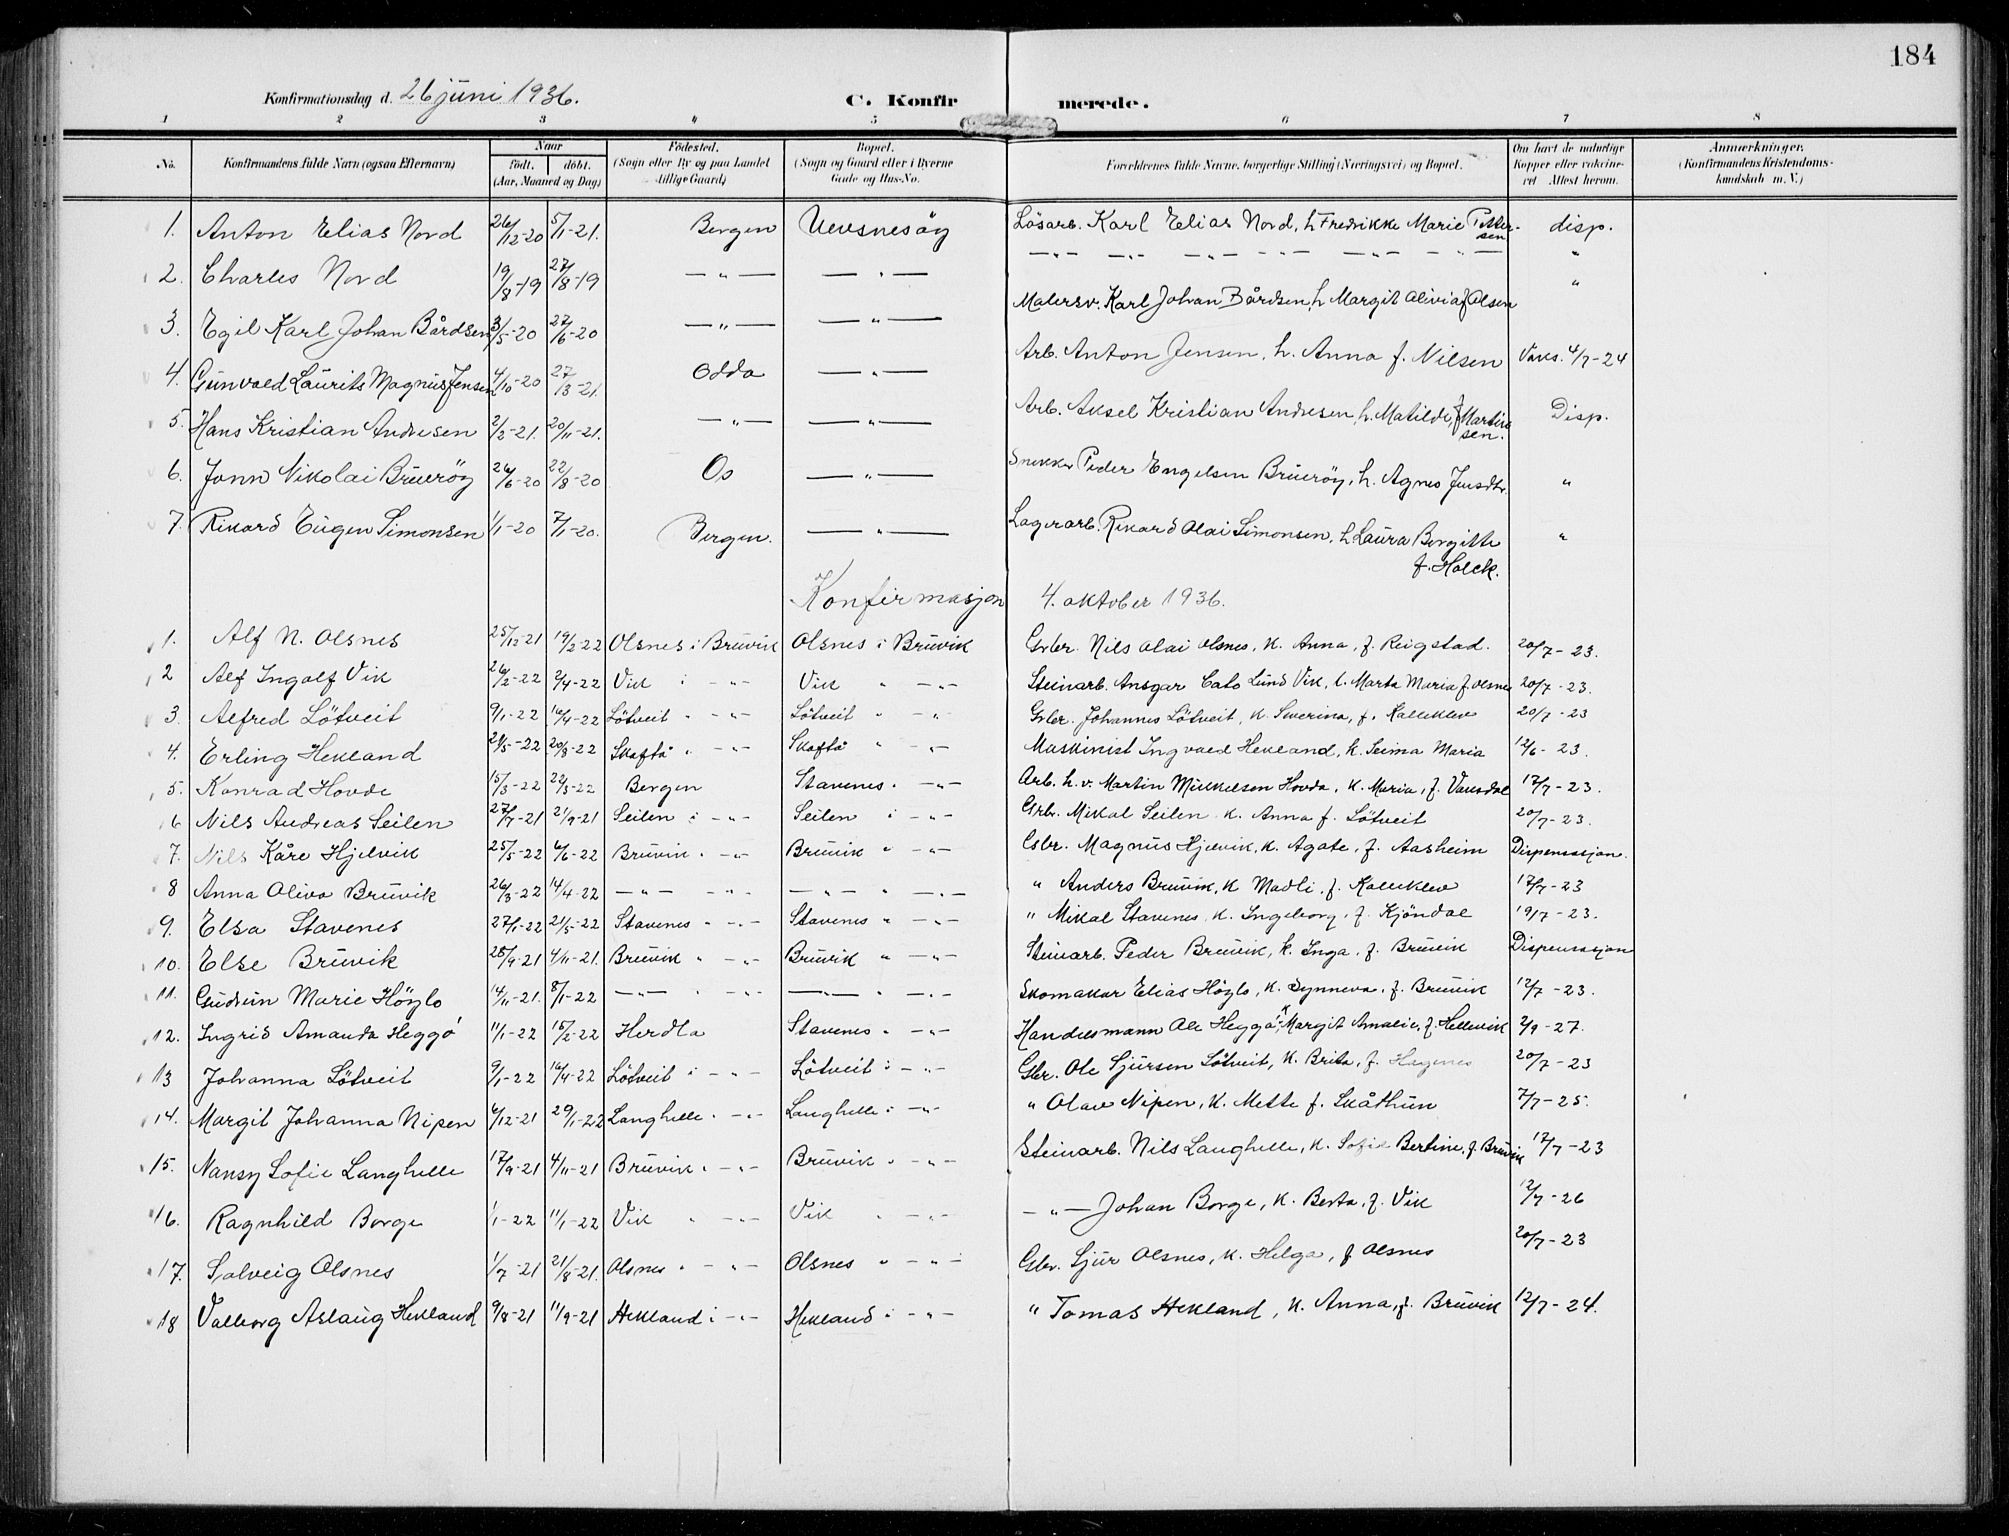 184
Konfirmationsdag d. 26 juni 1936. C. Konfirmerede.
1 2 3 4 5 6 7 8
No. Konfirmandens fulde Navn (ogsaa Efternavn) Naar født. døbt. (Aar, Maaned og Dag) Fødested. (Sogn eller By og paa Landet tillige Gaard) Bopæl. (Sogn og Gaard eller i Byerne Gade og Hus-No. Forældrenes fulde Navne, borgerlige Stilling (Næringsvei) og Bopæl. Om havt de naturlige Kopper eller vaccineret Attest herom. Anmærkninger. (Konfirmandens Kristendomskundskab m. V.)
1. Anton Elias Nord 26/12-20 5/1-21. Bergen Ulvsnesöy Lösarb. Karl Elias Nord, h. Fredrikke Marie Pettersen disp.
2. Charles Nord 19/8-19 27/8-19 —"— —"— —"— —"— —"— —"— —"— "
3. Egil Karl Johan Bårdsen 3/5-20 27/6-20 —"— —"— Malersv. Karl Johan Bårdsen, h. Margit Olivia f. Olsen "
4. Gunvald Laurits Magnus Jensen 4/10-20 27/3-21. Odda —"— Arb. Anton Jensen, h. Anna f. Nilsen Vaks. 4/7-24
5. Hans Kristian Andresen 2/2-21. 20/11-21. —"— —"— Arb. Aksel Kristian Andresen, h. Matilde, f. Martinsen. Disp.
6. Jonn Nikolai Brueröy 26/6-20 22/8-20 Os —"— Snekker Peder Engelsen Brueröy, h. Agnes Jensdtr. "
7. Rikard Eugen Simonsen 1/1-20 7/1-20. Bergen. —"— Lagerarb. Rikard Olai Simonsen, h. Laura Bergitte f. Holck. "
Konfirmasjon 4. oktober 1936.
1. Alf N. Olsnes 25/12-21 19/2-22 Olsnes i Bruvik Olsnes i Bruvik Gbr. Nils Olai Olsnes, k. Anna, f. Reigstad. 20/7-23.
2 Alf Ingolf Vik 26/2-22 2/4-22 Vik i -"- Vik " -"- Steinarb. Ansgar Cato Lund Vik, k. Marta Maria f. Olsnes 20/7-23.
3. Alfred Lötveit 9/1-22 16/4-22 Lötveit " -"- Lötveit " -"- Gbr. Johannes Lötveit, k. Severina, f. Kalleklev 20/7-23
4. Erling Hekland 21/5-22 20/8-22 Skaftå " -"- Skaftå " -"- Maskinist Ingvald Hekland, k. Selma Maria 12/6-23.
5. Konrad Hovde 15/3-22 22/3-22 Bergen Stavenes. -"- Arb. h. v. Martin Mikkelsen Hovda, k. Maria, f. Vaksdal 17/7-23.
6 Nils Andreas Seilen 27/7-21 21/9-21 Seilen i -"- Seilen i -"- Gbr. Mikal Seilen k. Anna f. Lötveit 20/7-23.
7. Nils Kåre Hjelvik 25/5-22 6/6-22 Bruvik. -"- Bruvik " -"- Gbr. Magnus Hjelvik, k. Agate, f. Aasheim Dispensasjon.
8 Anna Oliva Bruvik 26/3-22 14/4-22 -"- -"- -"- " -"- " Anders Bruvik, k Madli. f. Kalleklev 17/7-23
9. Elsa Stavenes 27/1-22 21/5-22 Stavenes " -"- Stavenes " -"- " Mikal Stavenes, k. Ingeborg, f. Kjöndal 19/7-23.
10. Else Bruvik 28/9-21 4/11-21. Bruvik " -"- Bruvik " -"- Steinarb. Peder Bruvik, k. Inga. f. Bruvik Dispensasjon
11. Gudrun Marie Höylo 14/11-21. 8/1-22 -"- " -"- —"— " -"- Skomaker Elias Höylo, k. Synneva, f. Bruvik 12/7-23.
12. Ingrid Amanda Heggö 11/1-22 15/2-22 Herdla Stavenes " -"- Handelsmann Ole Heggö, k. Margit Amalie, f. Hellevik 2/9-27.
13 Johanna Lötveit 9/1-22 16/4-22 Lötveit i -"- Lötveit i -"- Gbr. Ole Sjursen Lötveit, k. Brita, f. Hagenes 20/7-23
14. Margit Johanna Nipen 6/12-21 29/1-22 Langhelle. -"- Langhelle i -"- " Olav Nipen, k. Mette f. Skåthun 7/7-25.
15. Nansy Sofie Langhelle 17/9-21 4/11-21 Bruvik. -"- Bruvik " -"- Steinarb. Nils Langhelle, k. Sofie Bertine, f. Bruvik 17/7-23
16. Ragnhild Borge 1/1-22 11/1-22 Vik " -"- Vik " -"- -"- Johan Borge, k. Berta, f. Vik 12/7-26
17. Solveig Olsnes 1/7-21 21/8-21. Olsnes " -"- Olsnes " -"- Gbr. Sjur Olsnes, k. Helga, f Olsnes 20/7-23
18 Valborg Aslaug Hekland 9/8-21 11/9-21 Hekland i -"- Hekland i -"- " Tomas Hekland, k. Anna, f. Bruvik 12/7-24.